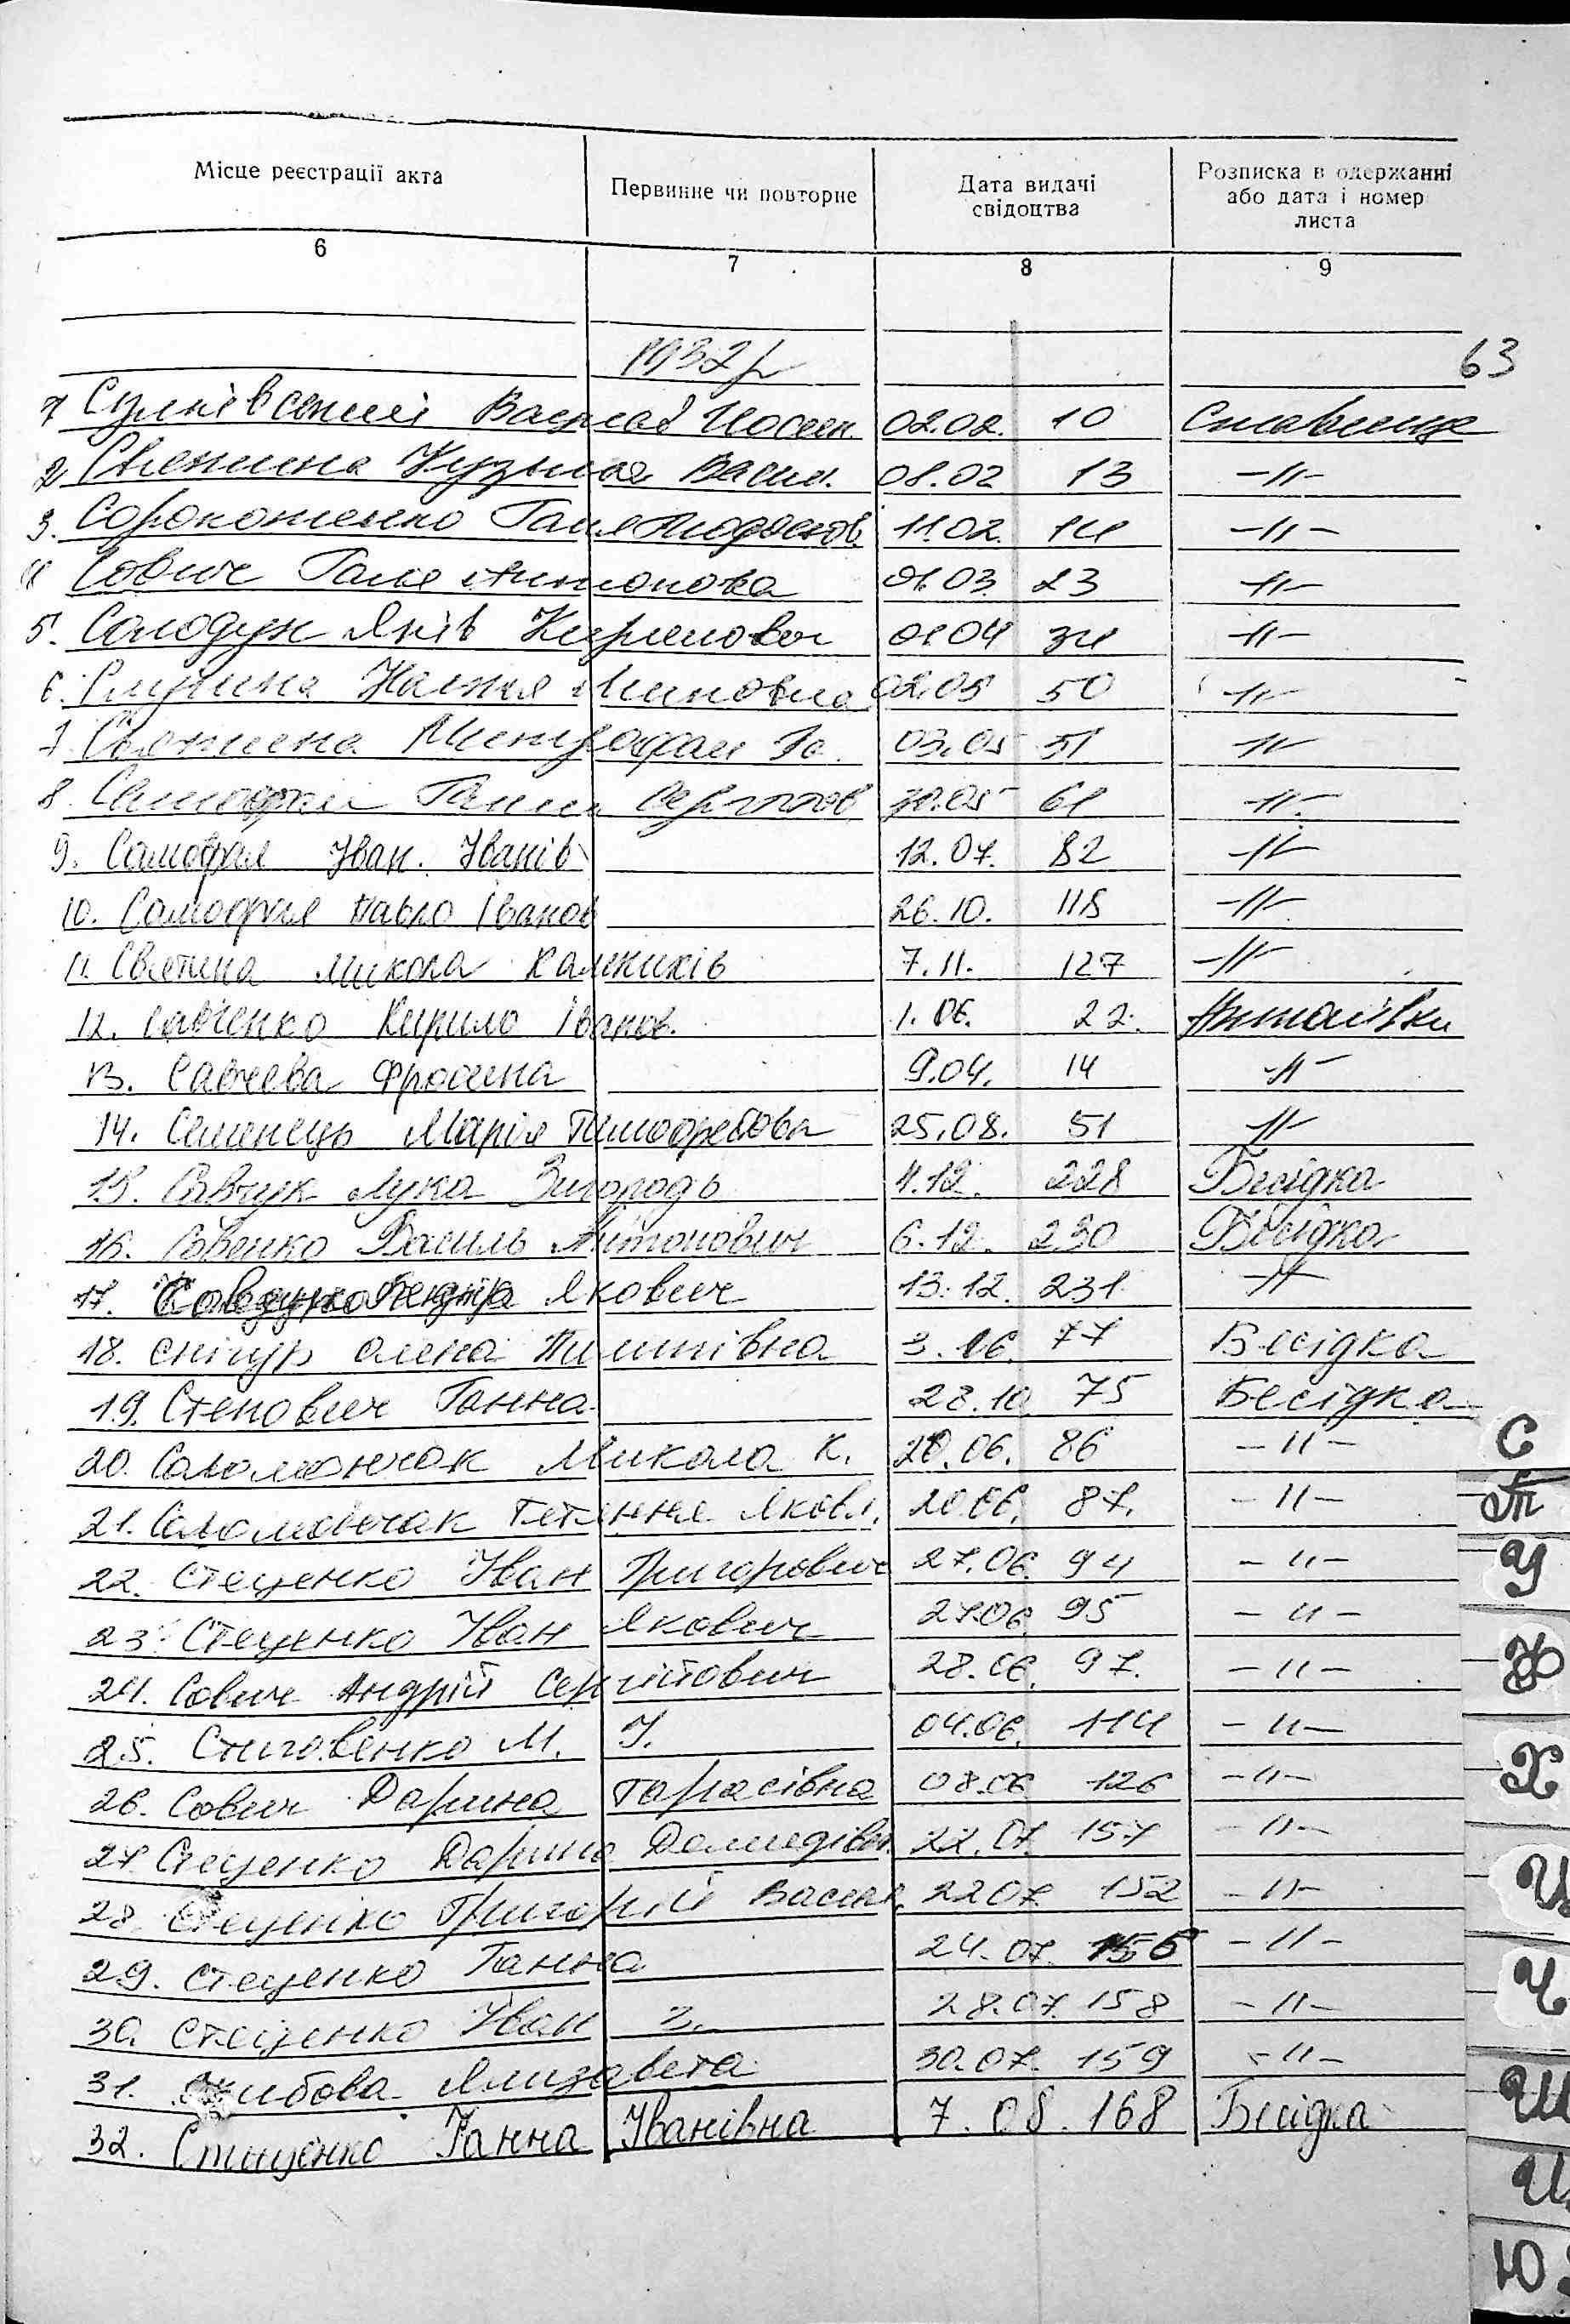 Місце реєстрації акта
Первинне чи повторне
Дата видачі
свідоцтва
Розписка в одержанні
або дата і номер
листа
6 7 8 9
1932 р
63
1 Василь Йосип. 02.02. 10 Ставище
2. Святина Кузьма Васил. 08.02 13 -"-
3. Галя 11.02. 14 -"-
4 Сович Галя Антонова 01.03 23 -"-
5. Солодун Яків Кирилович 01.04 34 -"-
6. Настя Миновна 02.05 50 -"-
7. Святина Митрофан 03.05 51 -"-
8. Ганна 30.05 61 -"-
9. Самофал Іван. Іванів 12.07. 82 -"-
10. Самофал Павло Іванов 26.10. 118 -"-
11. Святина Микола 7.11. 127 -"-
12. Савченко Кирило Іванов. 1.06. 22.
13. Савчева Фросина 9.04. 14 -"-
14. Семенець Марія Тимофеєвва 25.08. 51 -"-
15. Савчук Лука 4.12. 228 Бесідка
16. Василь Антонович 6.12. 230 Бесідка
17. Якович 13.12. 231. -"-
18. Снігур Олена Пилипівна 3.06. 77 Бесідка
19. Степович Ганна. 28.10 75 Бесідка
20. Соломончак Микола К. 20.06. 86 -"-
21. Соломончак Тетянна Яковл. 20.06. 87. -"-
22. Стеценко Іван Григорович 27.06. 94 -"-
23. Стеценко Іван Якович 27.06 95 -"-
24. Сович Андрій Сергійович 28.06. 97. -"-
25. М. І. 04.06. 114 -"-
26. Сович Дарина Тарасівна 08.06 126 -"-
27. Стеценко Дарина 22.07. 157 -"-
28. Стеценко Григорій Васил. 22 07. 152 -"-
29. Стеценко Ганна 24.07. 156 -"-
30. Стеценко Іван 28.07. 158 -"-
31. 30.07. 159 -"-
32. Стеценко Ганна Іванівна 7.08. 168 Бесідка
С
Т
У
Ф
Х
Ц
Ч
Ш
Щ
Ю